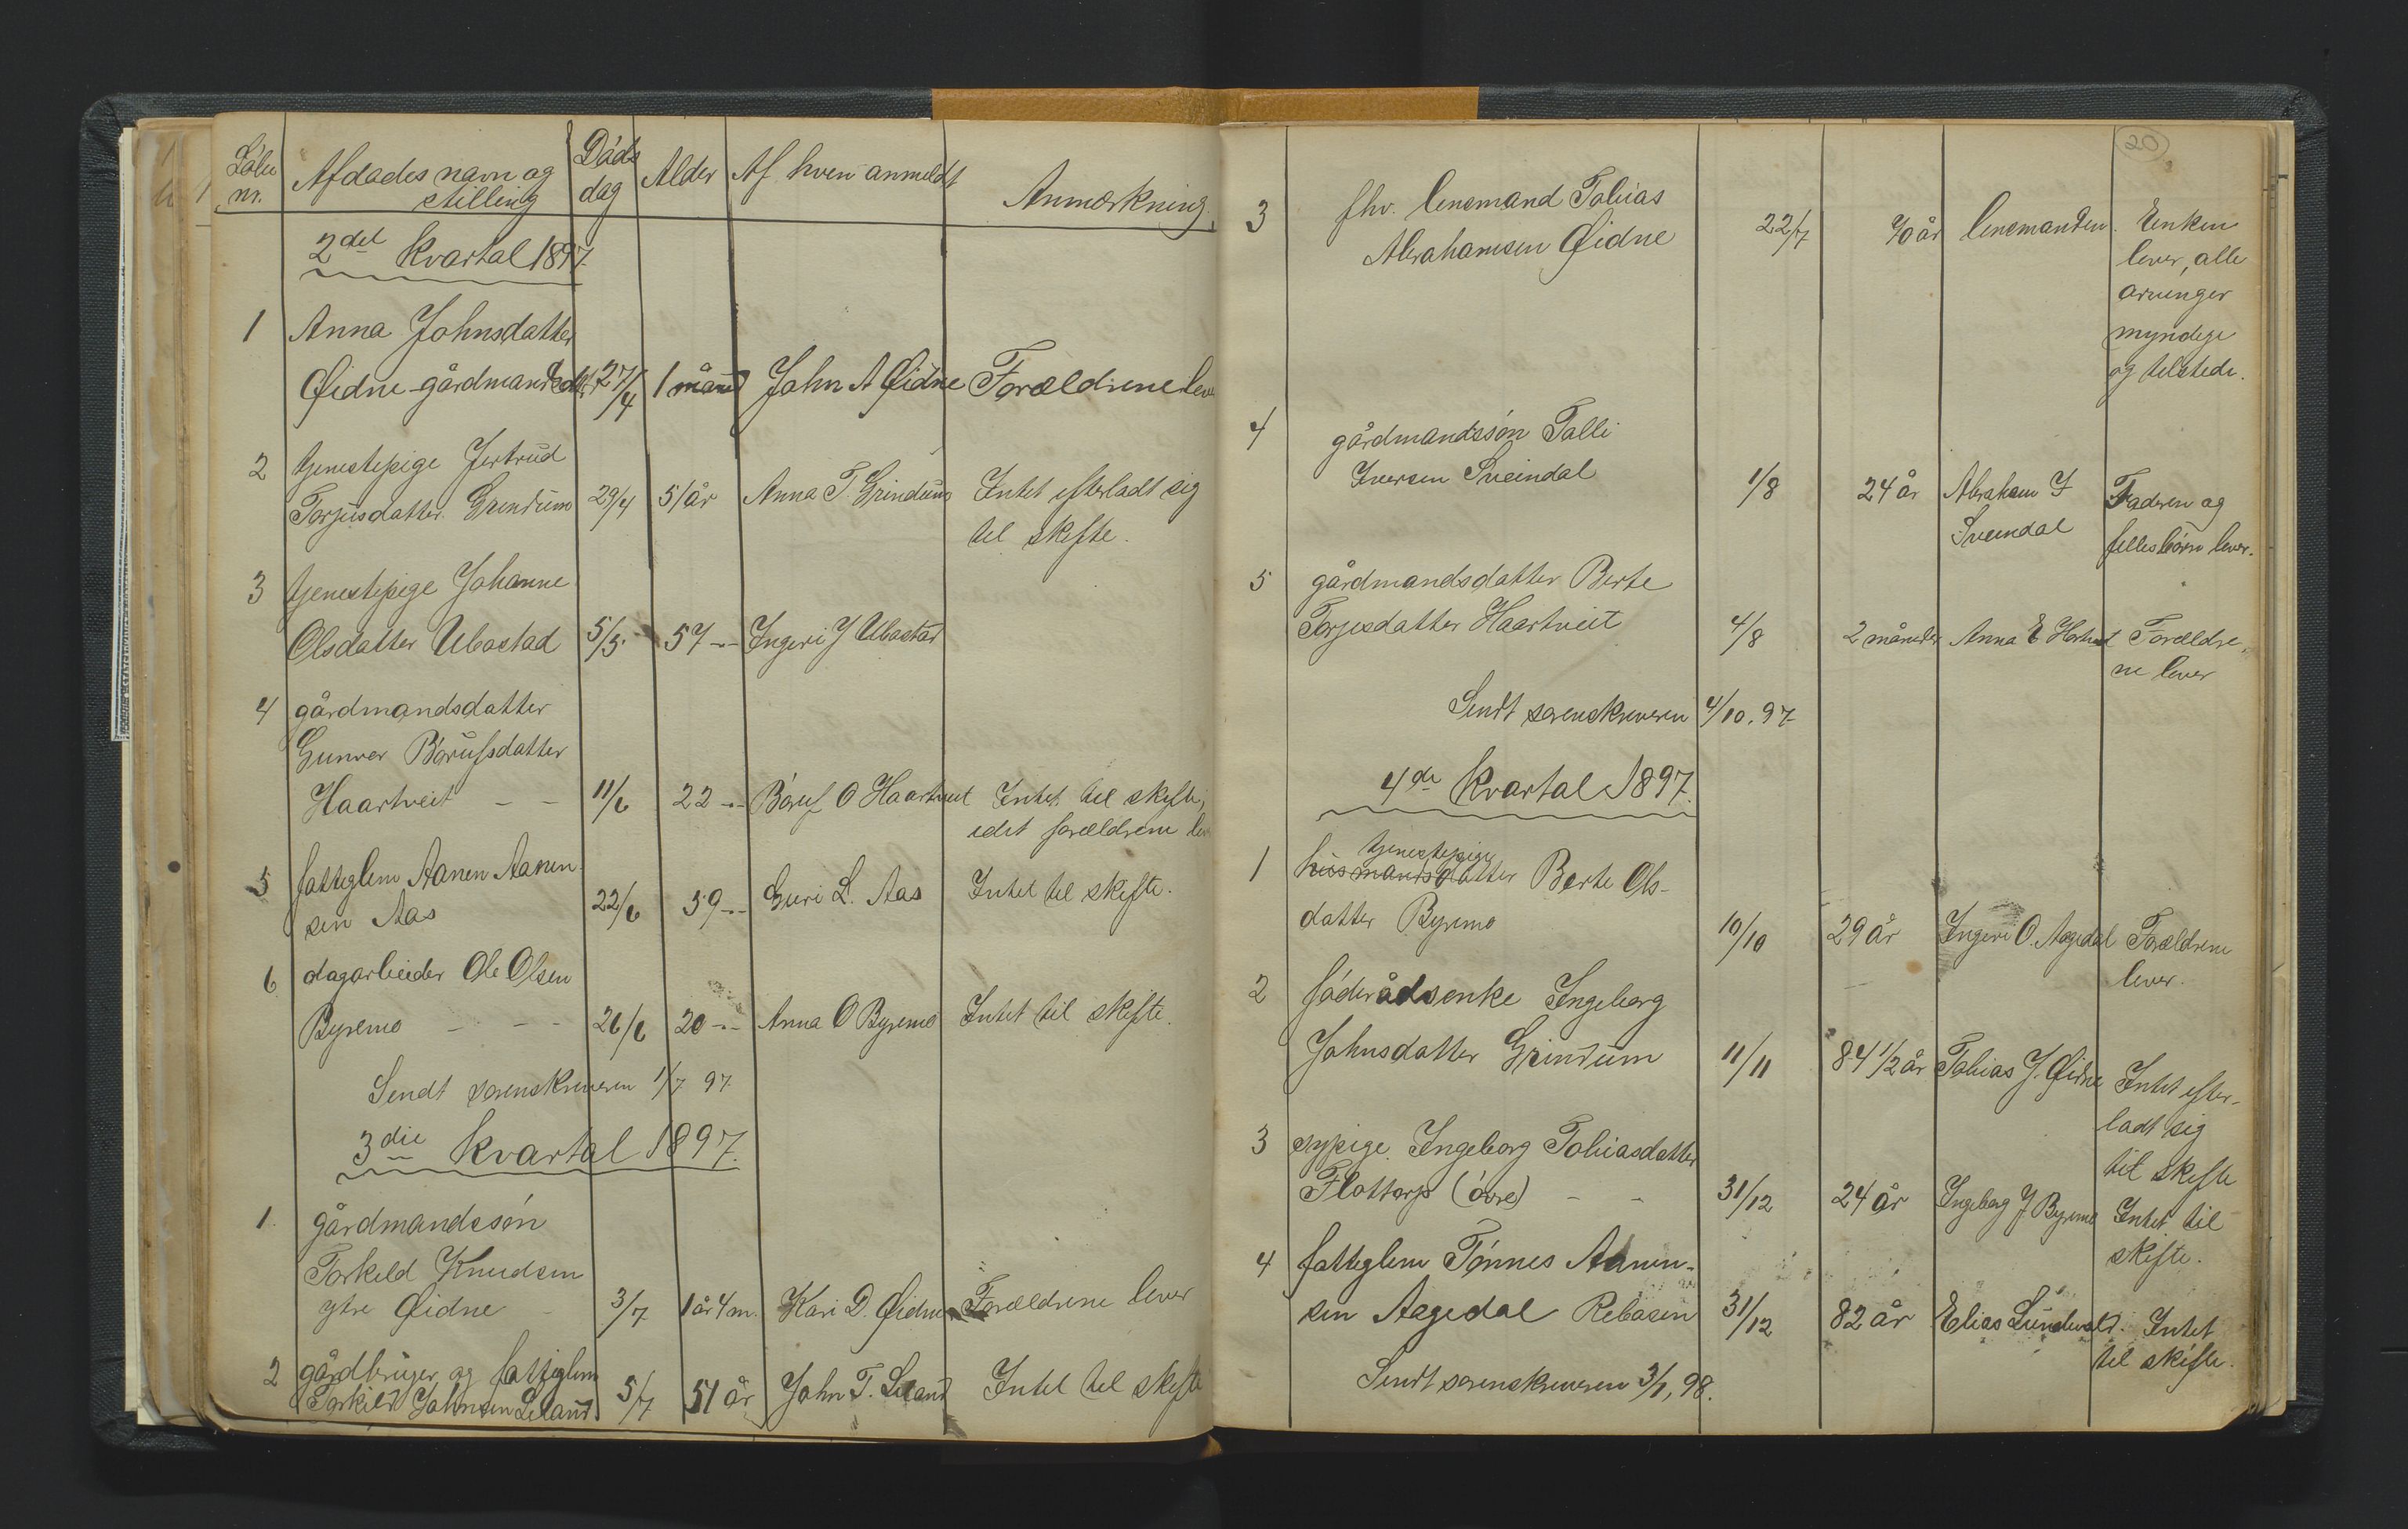 Løbe nr. Afdødes navn og stilling Døds dag Alder Af hvem anmeldt Anmærkning.
2det kvartal 1897.
1 Anna Johnsdatter
Øidne gårdmandsdtr. 27/4 1 måned John A Øidne Forældrene lever
2 tjenestepige Jertrud
Torjusdatter Grindum 29/4 51 år Anna T. Grindum Intet efterladt sig
til skifte.
3 tjenestepige Johanne
Olsdatter Ubostad 5/5 57 -"- Ingeri J Ubostad
4 gårdmandsdatter
Gunvor Børufsdatter
Haartveit - - 11/6 22 -"- Børuf O Haartveit Intet til skifte,
idet forældrene lever
5 fattiglem Aanen Aanen-
sen Aas 22/6 59 -"- Guri L. Aas Intet til skifte.
6 dagarbeider Ole Olsen
Byremo - - - 26/6 20 -"- Anna O Byremo Intet til skifte.
Sendt sorenskriveren 1/7 97.
3die kvartal 1897.
1. gårdmandssøn
Torkeld Knudsen
ytre Øidne - 3/7 1 år 4 m. Kari D. Øidne Forældrene lever
2 gårdbruger og fattiglem
Torkild Johnsen Leland 5/7 51 år John T. Leland Intet til skifte
20
3 fhv. lensmand Tobias
Abrahamsen Øidne 22/7 70 år lensmanden. Enken
lever, alle
arvinger
myndige
og tilstede.
4 gårdmandssøn Talli
Iversen Sveindal 1/8 24 år Abraham I Sveindal Faderen og
fellesbørn lever.
5 gårdmandsdatter Berte
Torjusdatter Haartveit 4/8 2 måneder Anna E Hortveit Forældre-
ne lever
Sendt sorenskriveren 4/10. 97.
4de kvartal 1897.
tjenestepige
1 husmandsdatter Berte Ols-
datter Byremo 10/10 29 år Ingeri O. Aagedal Forældrene
lever.
2 føderådsenke Ingeborg
Johnsdatter Grindum 11/11 84 1/2 år Tobias J. Øidne Intet efter-
ladt sig
til skifte
3 sypige. Ingeborg Tobiasdatter
Flottorp (øvre) - - 31/12 24 år Ingeborg J Byremo Intet til
skifte.
4 fattiglem Tønnes Aanen-
sen Aagedal Rebaasen 31/12 82 år Elias Sundevald. Intet
til skifte.
Sendt sorenskriveren 3/1, 98.